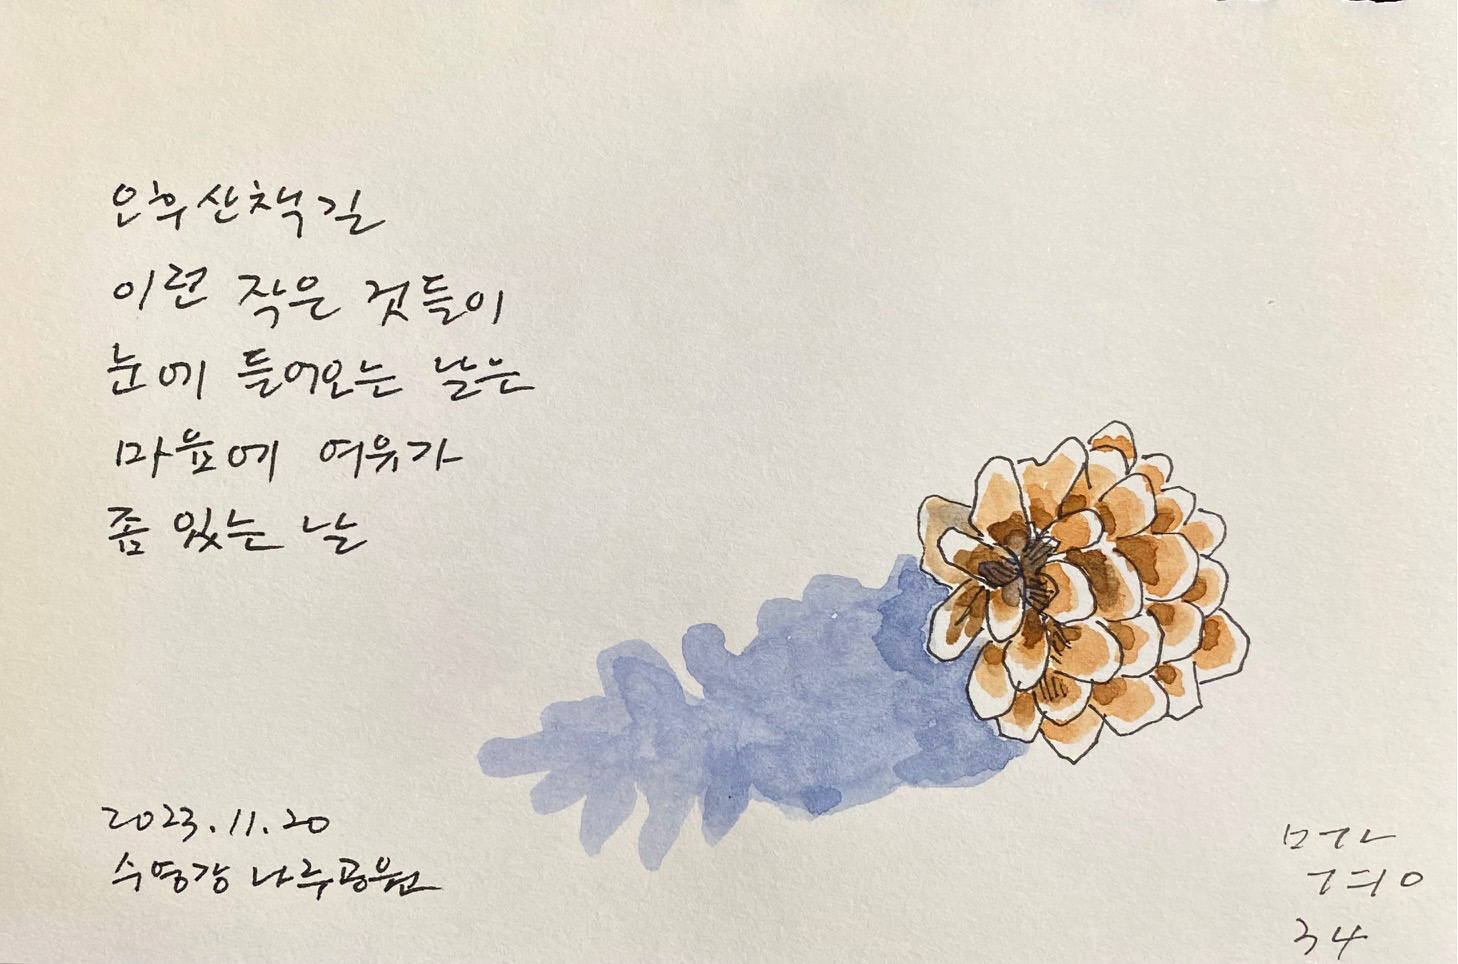 오후 산책길
이런 작은 것들이
눈에 들어오는 날은
마음에 여유가
좀 있는 날
2023.11.20
수영강 나루공원
34